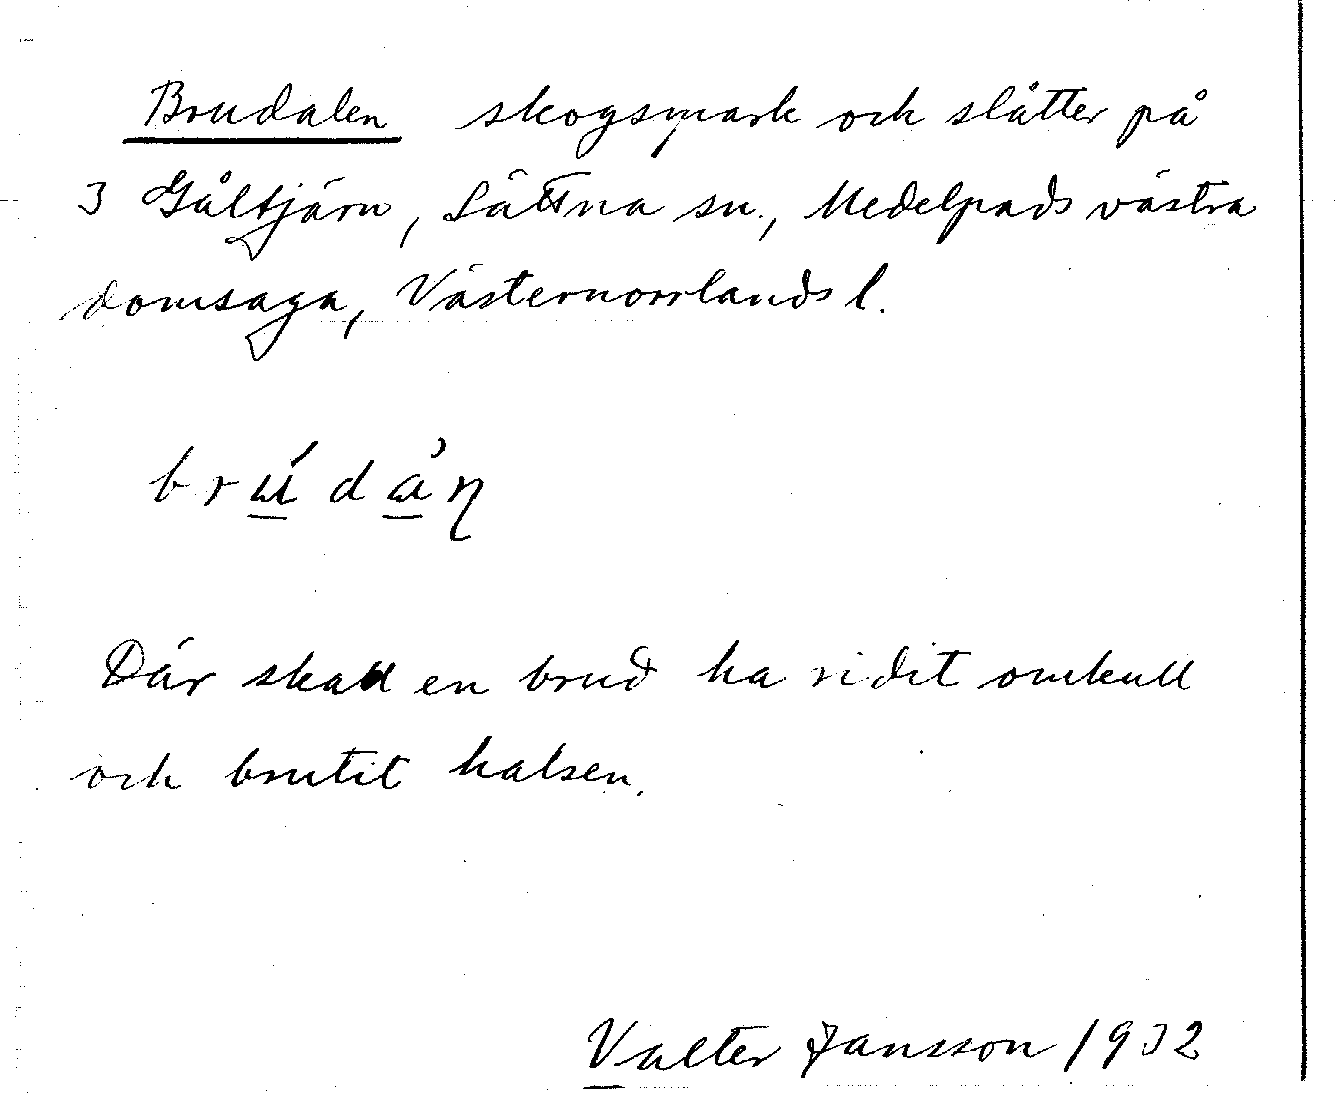 Brudalen skogsmark och slåtter på
3 Gåltjärn, Sättna sn., Medelpads västra
domsaga, Västernorrlands l.
Där skall en brud ha ridit omkull
och brutit halsen.
Valter Jansson 1932